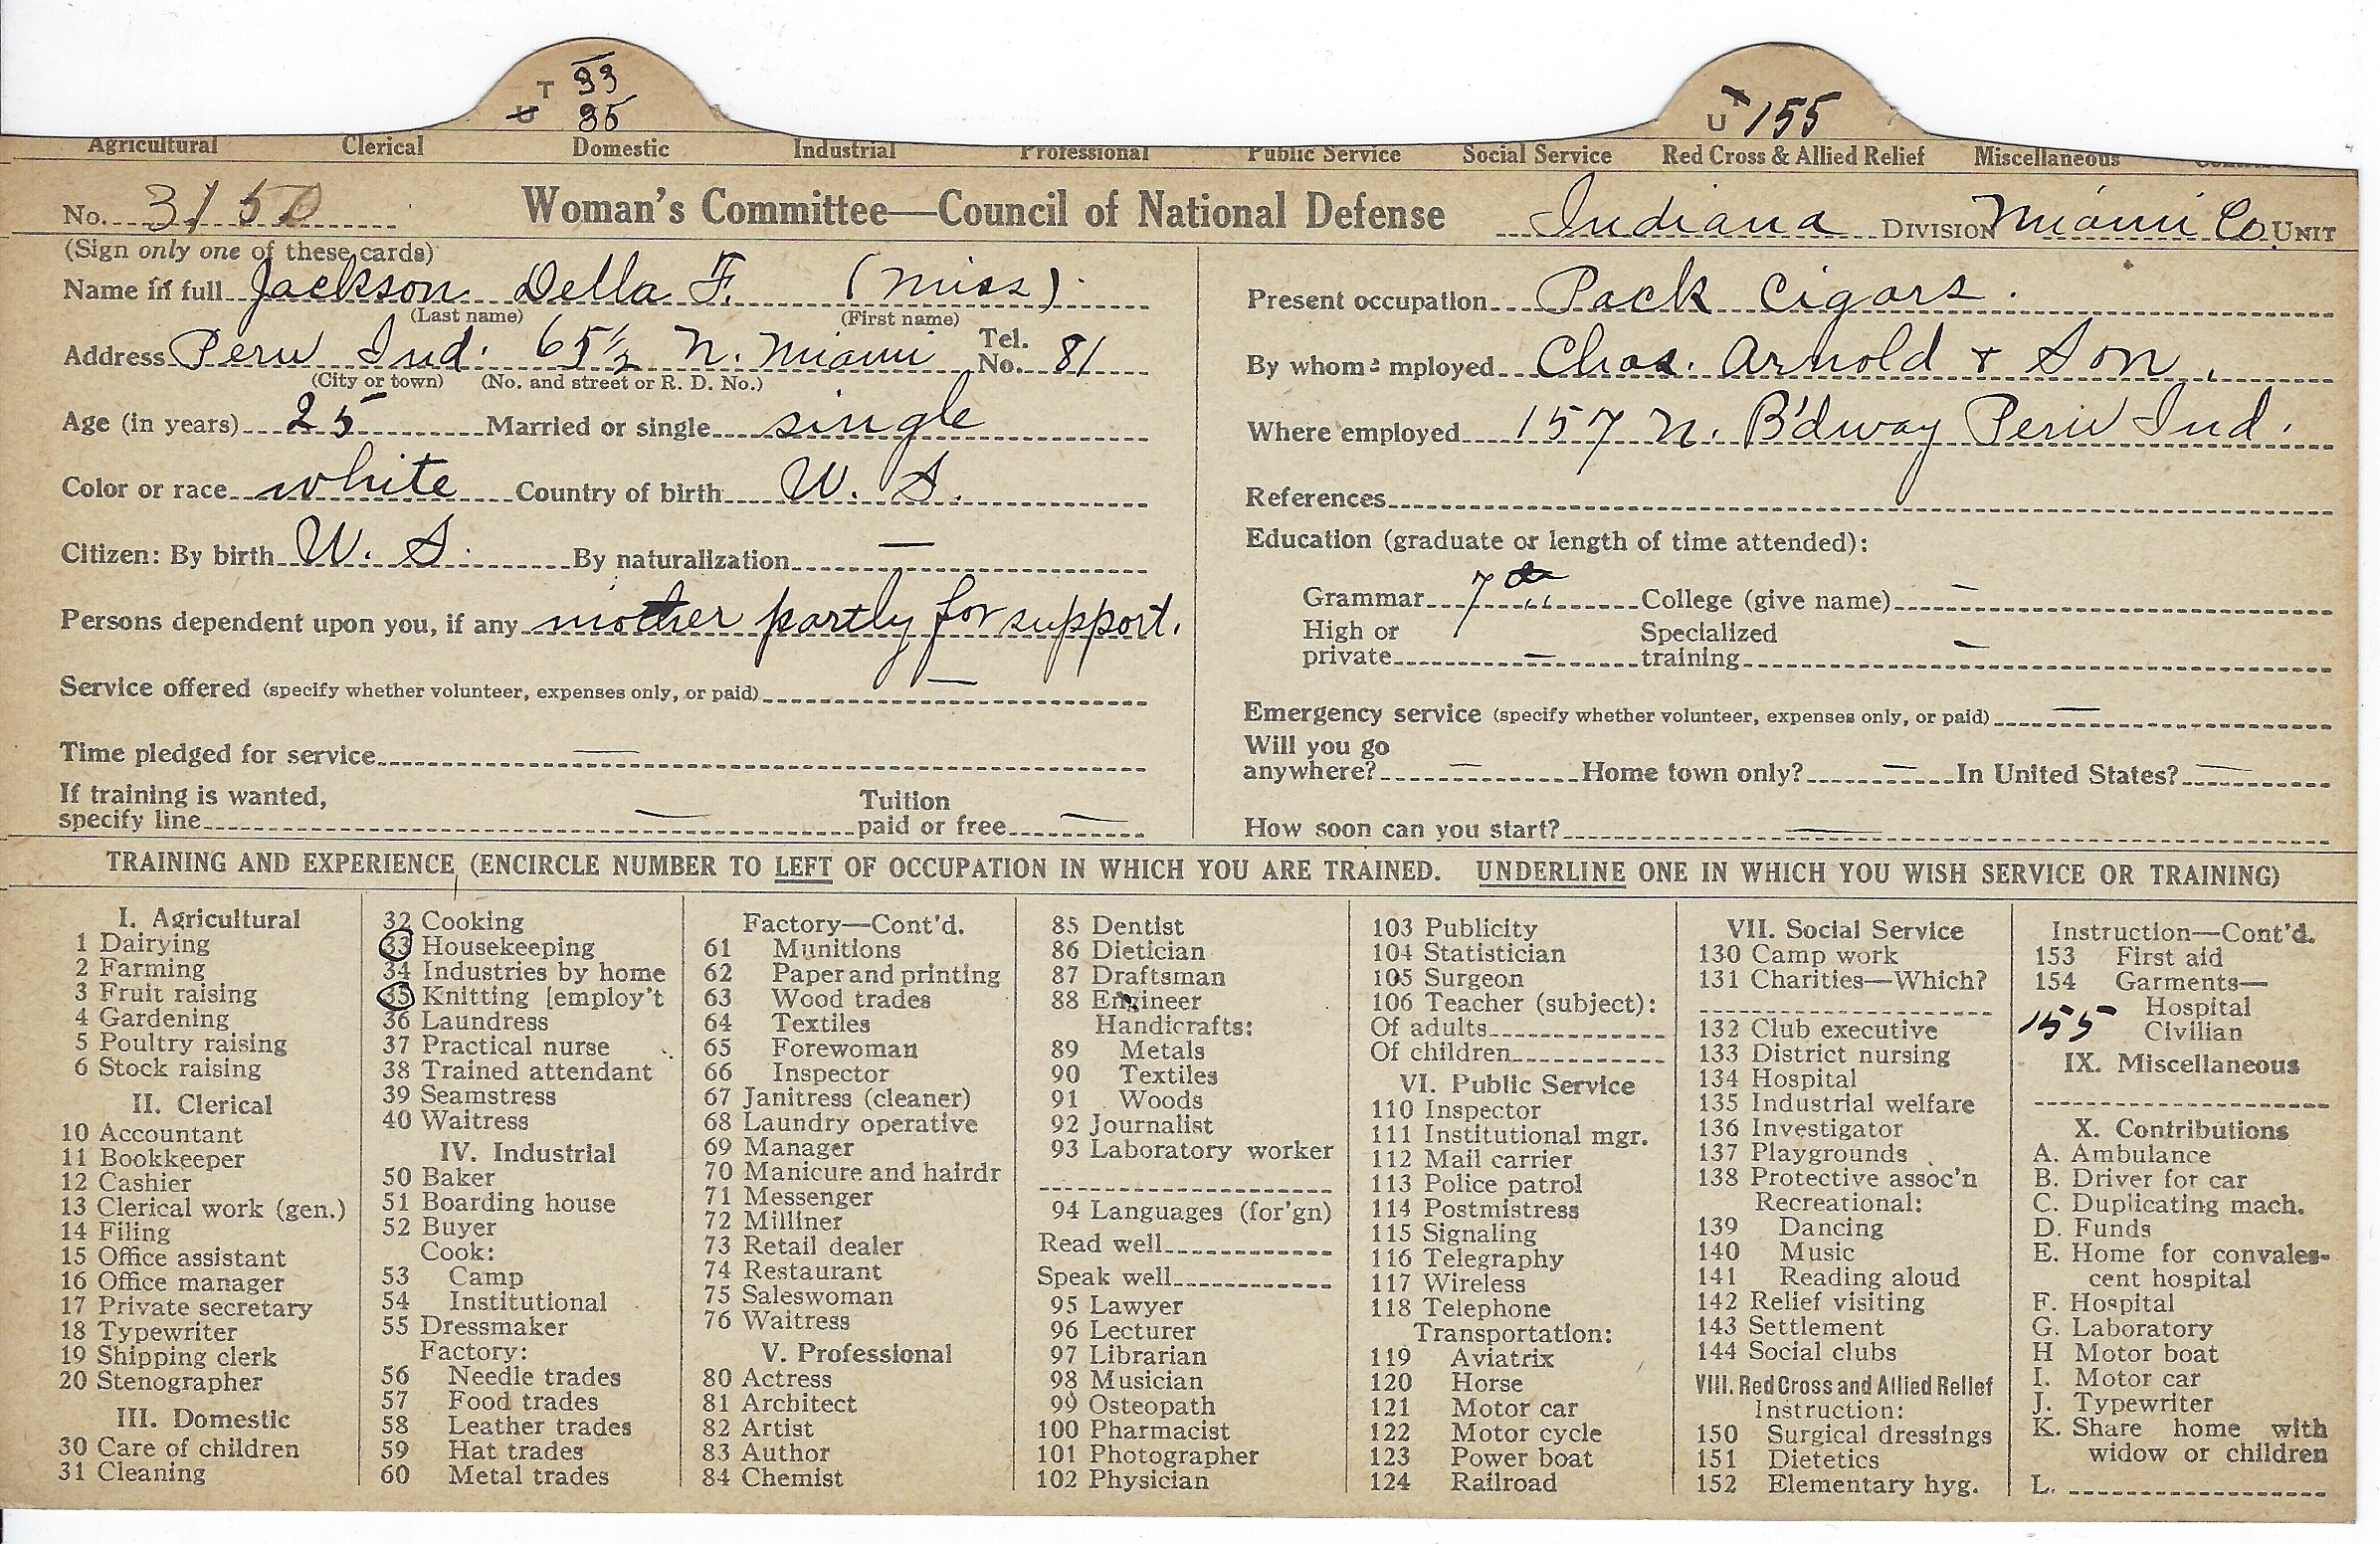 T 33
U 35
T
U 155
Agricultural Clerical Domestic Industrial Professional Public Service Social Service Red Cross & Allied Relief Miscellaneous
No. 3150 Woman's Committee—Council of National Defense Indiana DIVISION Miami Co. UNIT
(Sign only one of these cards)
Name in full Jackson Della F. (Miss)
(Last name) (First name)
Address Peru Ind. 65½ N. Miami Tel. No. 81
(City or town) (No. and street or R. D. No.)
Age (in years) 25 Married or single single
Color or race white Country of birth U. S.
Citizen: By birth U. S. By naturalization —
Persons dependent upon you, if any mother partly for support.
Service offered (specify whether volunteer, expenses only, or paid) —
Time pledged for service —
If training is wanted,
specify line — Tuition paid or free —
Present occupation Pack Cigars.
By whom employed Chas. Arnold & Son.
Where employed 157 N. B'dway Peru Ind.
References
Education (graduate or length of time attended):
Grammar 7th College (give name) —
High or private — Specialized training —
Emergency service (specify whether volunteer, expenses only, or paid) —
Will you go
anywhere? — Home town only? — In United States? —
How soon can you start? —
TRAINING AND EXPERIENCE (ENCIRCLE NUMBER TO LEFT OF OCCUPATION IN WHICH YOU ARE TRAINED. UNDERLINE ONE IN WHICH YOU WISH SERVICE OR TRAINING)
I. Agricultural
1 Dairying
2 Farming
3 Fruit raising
4 Gardening
5 Poultry raising
6 Stock raising
II. Clerical
10 Accountant
11 Bookkeeper
12 Cashier
13 Clerical work (gen.)
14 Filing
15 Office assistant
16 Office manager
17 Private secretary
18 Typewriter
19 Shipping clerk
20 Stenographer
III. Domestic
30 Care of children
31 Cleaning
32 Cooking
33 Housekeeping
34 Industries by home
35 Knitting [employ't
36 Laundress
37 Practical nurse
38 Trained attendant
39 Seamstress
40 Waitress
IV. Industrial
50 Baker
51 Boarding house
52 Buyer
Cook:
53 Camp
54 Institutional
55 Dressmaker
Factory:
56 Needle trades
57 Food trades
58 Leather trades
59 Hat trades
60 Metal trades
Factory—Cont'd.
61 Munitions
62 Paper and printing
63 Wood trades
64 Textiles
65 Forewoman
66 Inspector
67 Janitress (cleaner)
68 Laundry operative
69 Manager
70 Manicure and hairdr
71 Messenger
72 Milliner
73 Retail dealer
74 Restaurant
75 Saleswoman
76 Waitress
V. Professional
80 Actress
81 Architect
82 Artist
83 Author
84 Chemist
85 Dentist
86 Dietician
87 Draftsman
88 Engineer
Handicrafts:
89 Metals
90 Textiles
91 Woods
92 Journalist
93 Laboratory worker
94 Languages (for'gn)
Read well
Speak well
95 Lawyer
96 Lecturer
97 Librarian
98 Musician
99 Osteopath
100 Pharmacist
101 Photographer
102 Physician
103 Publicity
104 Statistician
105 Surgeon
106 Teacher (subject):
Of adults
Of children
VI. Public Service
110 Inspector
111 Institutional mgr.
112 Mail carrier
113 Police patrol
114 Postmistress
115 Signaling
116 Telegraphy
117 Wireless
118 Telephone
Transportation:
119 Aviatrix
120 Horse
121 Motor car
122 Motor cycle
123 Power boat
124 Railroad
VII. Social Service
130 Camp work
131 Charities—Which?
132 Club executive
133 District nursing
134 Hospital
135 Industrial welfare
136 Investigator
137 Playgrounds
138 Protective assoc'n
Recreational:
139 Dancing
140 Music
141 Reading aloud
142 Relief visiting
143 Settlement
144 Social clubs
VIII. Red Cross and Allied Relief
Instruction:
150 Surgical dressings
151 Dietetics
152 Elementary hyg.
Instruction—Cont'd.
153 First aid
154 Garments—
Hospital
155 Civilian
IX. Miscellaneous
X. Contributions
A. Ambulance
B. Driver for car
C. Duplicating mach.
D. Funds
E. Home for convales-
cent hospital
F. Hospital
G. Laboratory
H Motor boat
I. Motor car
J. Typewriter
K. Share home with
widow or children
L.